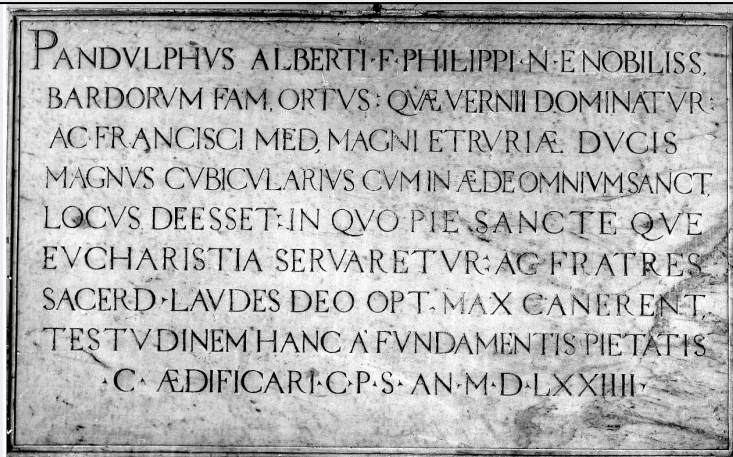 PANDVLPHVS ALBERTI·F·PHILIPPI·N·E NOBILISS,
BARDORVM FAM, ORTVS: QVÆ VERNII DOMINATVR:
AC FRANCISCI MED, MAGNI ETRVRIÆ DVCIS
MAGNVS CVBICVLARIVS CVM IN ÆDE OMNIVM SANCT,
LOCVS DEESSET: IN QVO PIE SANCTE QVE
EVCHARISTIA SERVARETVR: AC FRATRES
SACERD· LAVDES DEO OPT. MAX CANERENT,
TESTVDINEM HANC A FVNDAMENTIS PIETATIS
·C· ÆDIFICARI·C·P·S· AN·M·D·LXXIIII·